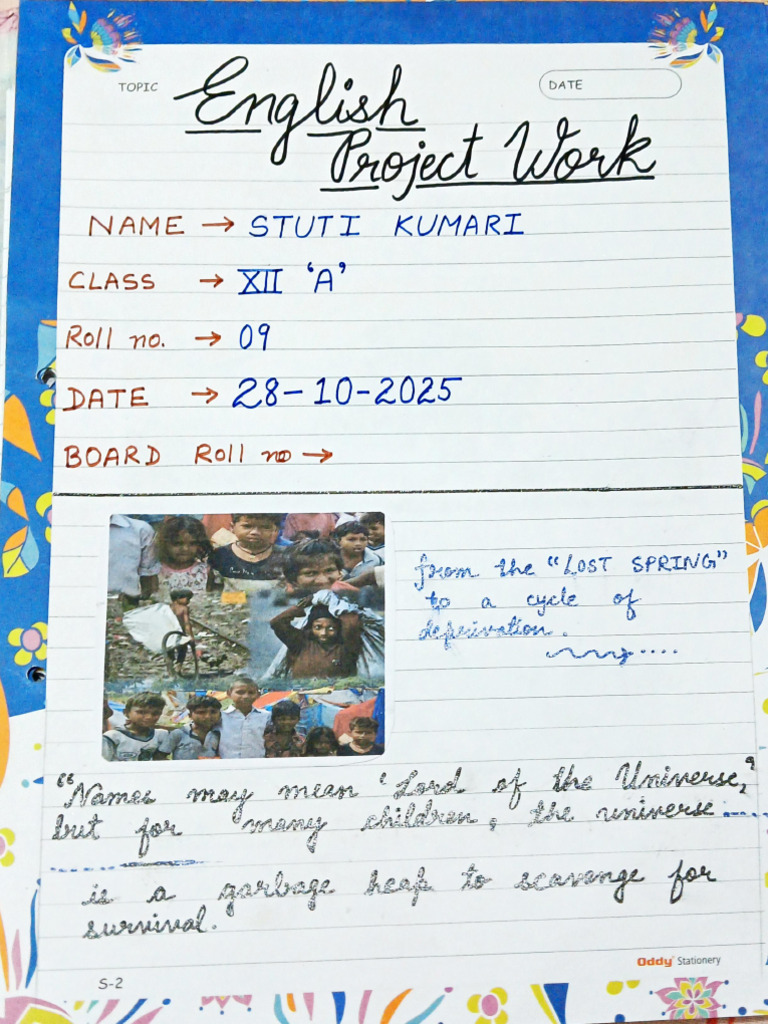 TOPIC
DATE
English
Project Work
NAME → STUTI KUMARI
CLASS → XII 'A'
Roll no. → 09
DATE → 28-10-2025
BOARD Roll no →
from the "LOST SPRING"
to a cycle of
deprivation.
"Names may mean 'Lord of the Universe,'
but for many children, the universe
is a garbage heap to scavenge for
survival.
Oddy Stationery
S-2